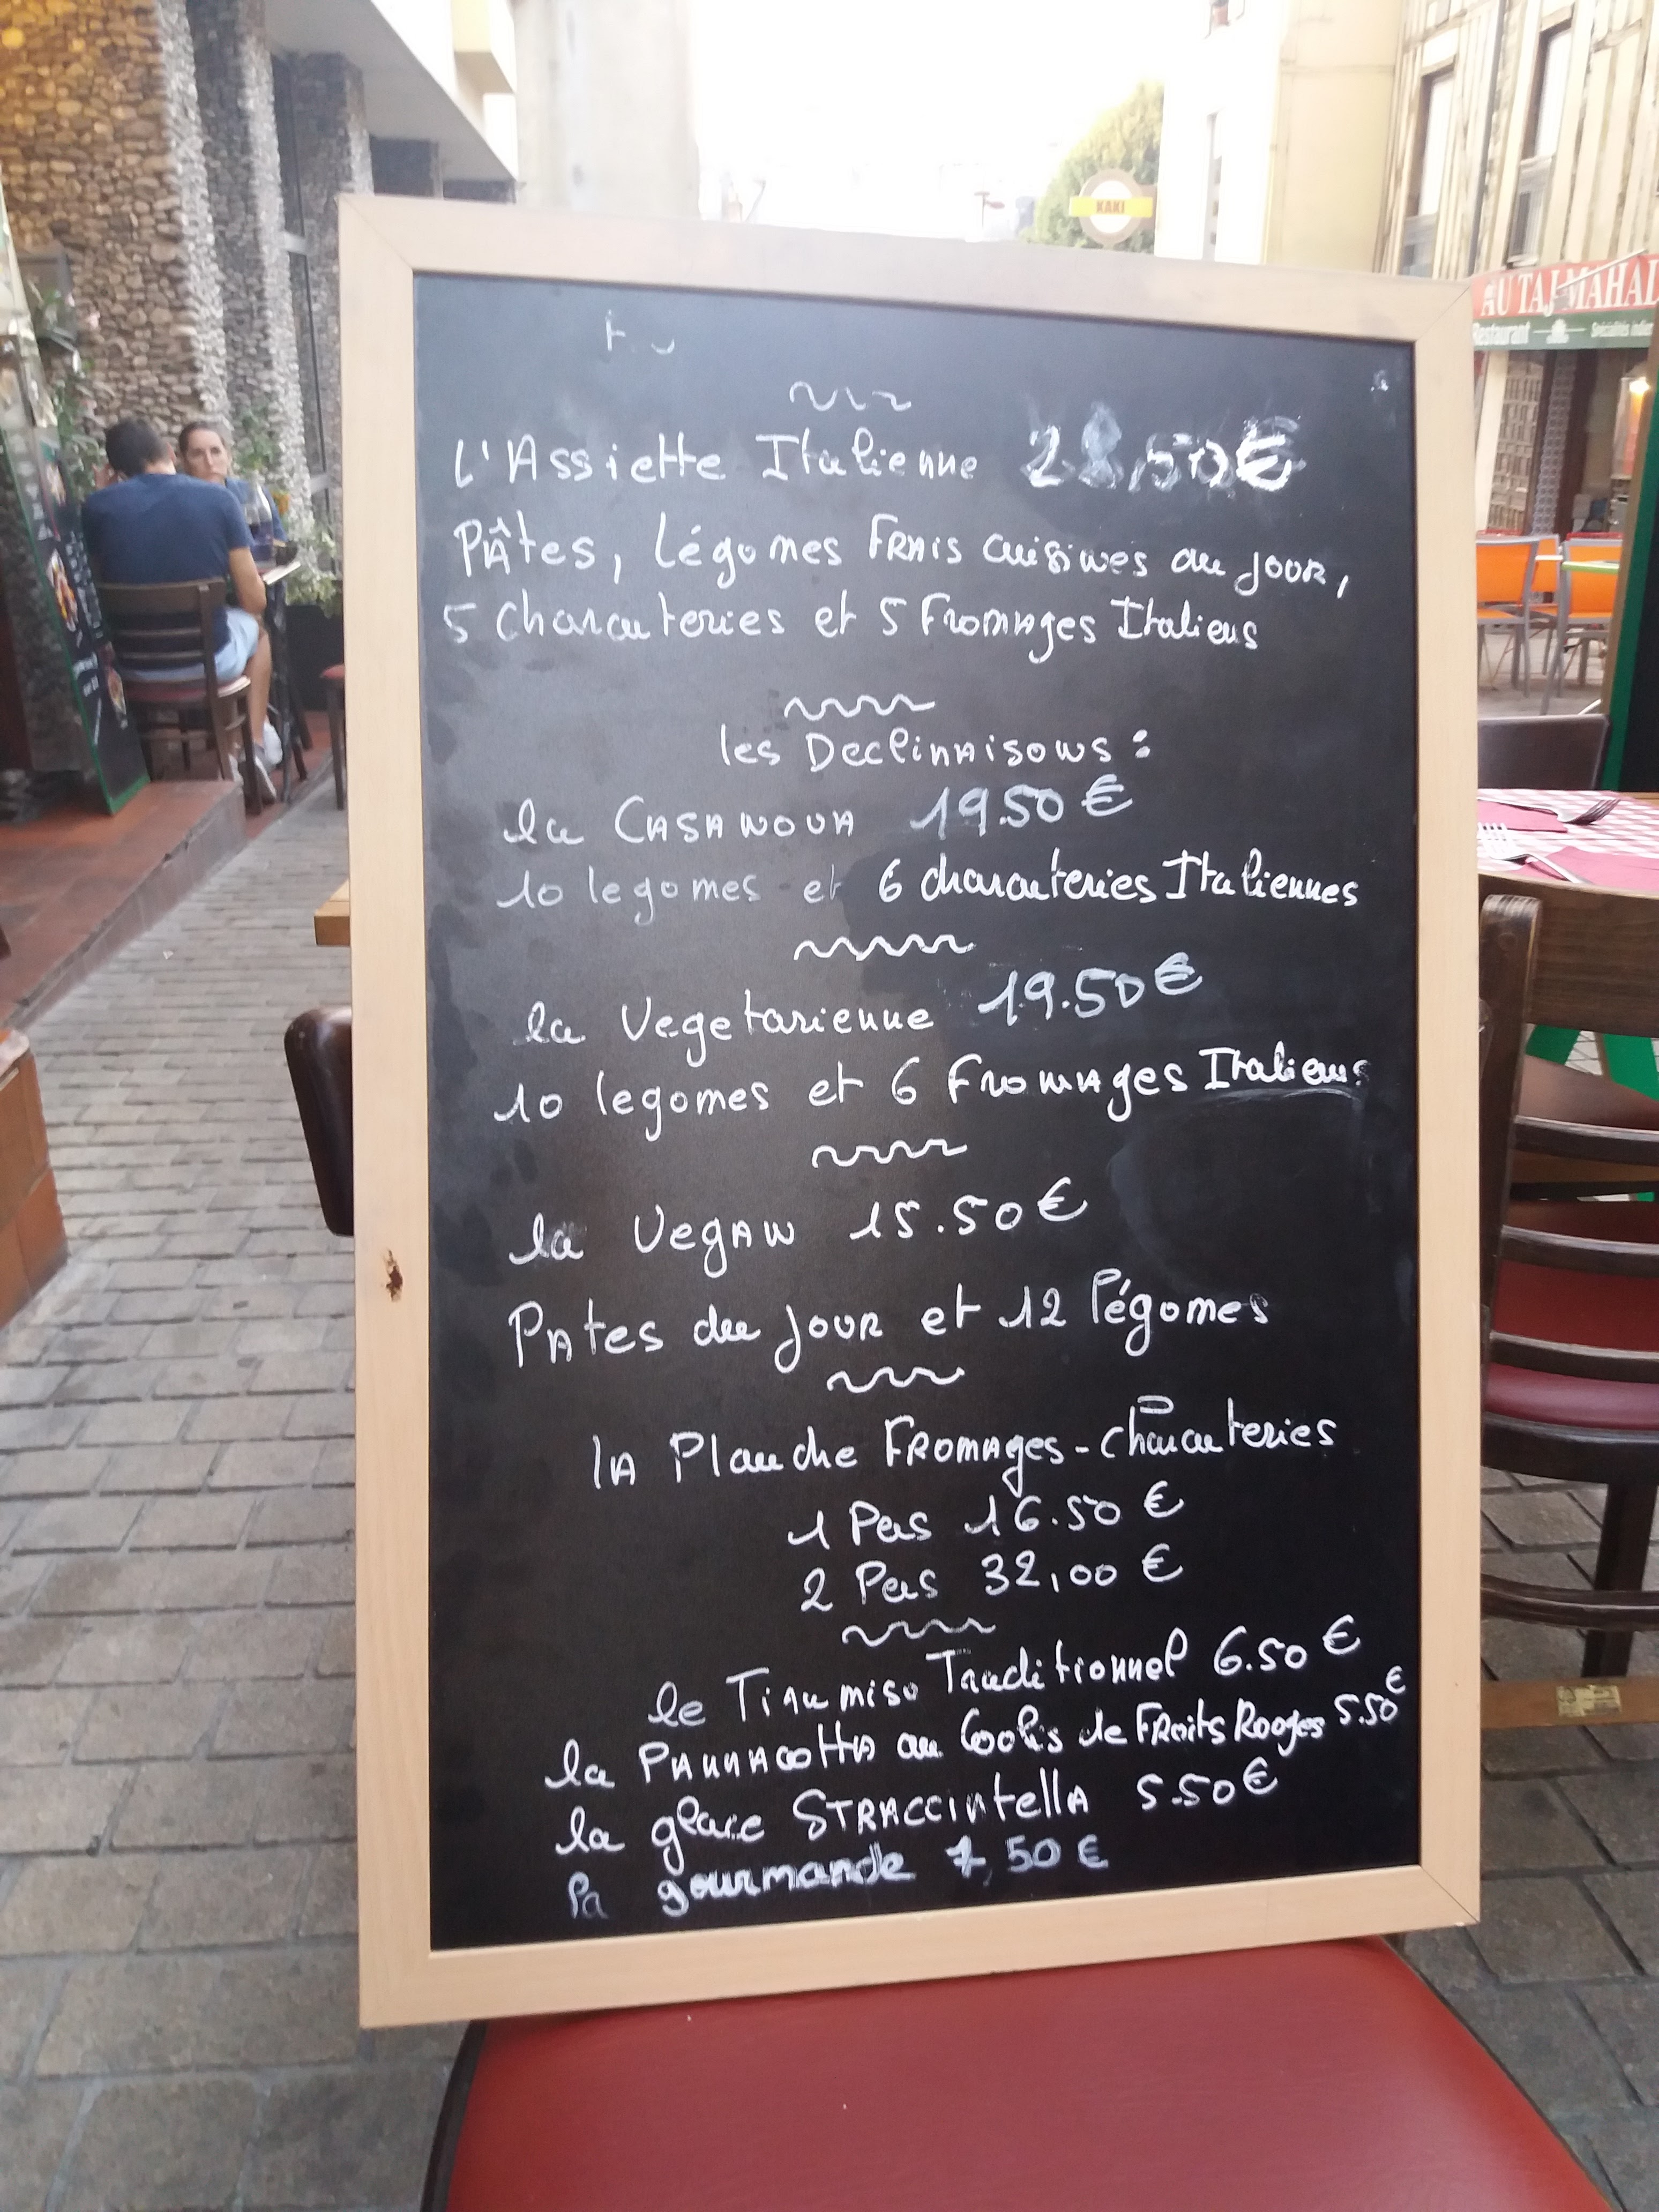 KAKI
AU TAJ MAHAL
Restaurant
L'Assiette Italienne 28,50€
Pâtes, légumes Frais cuisines du jour,
5 Charcuteries et 5 Fromages Italiens
les Declinnaisons :
la CASANOVA 19.50€
10 legumes et 6 charcuteries Italiennes
la Vegetarienne 19.50€
10 legumes et 6 Fromages Italiens
la Vegan 15.50€
Pates du jour et 12 légumes
la Planche Fromages-charcuteries
1 Pers 16.50 €
2 Pers 32,00 €
le Tiramiso Traditionnel 6.50 €
la Pannacotta au Coolis de Fruits Rouges 5.50€
la glace STRACCIATELLA 5.50€
la gourmande 7,50 €